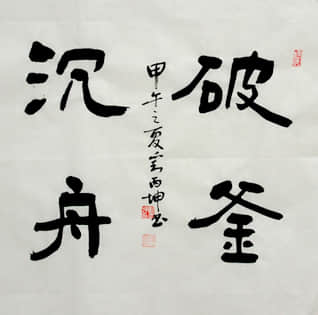 破釜
沉舟
甲午之夏 丙坤书